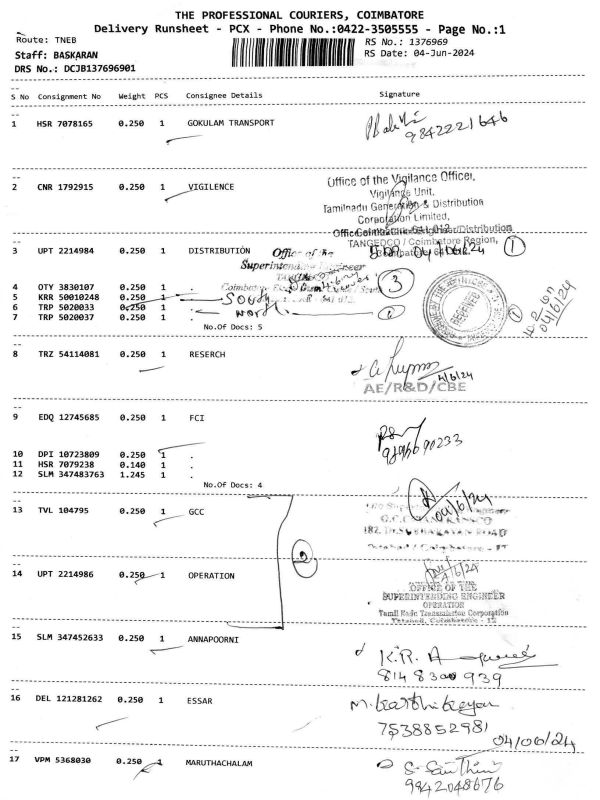 THE PROFESSIONAL COURIERS, COIMBATORE
Delivery Runsheet - PCX - Phone No.:0422-3505555 - Page No.:1
Route: TNEB
RS No.: 1376969
Staff: BASKARAN
RS Date: 04-Jun-2024
DRS No.: DCJB137696901
S No Consignment No Weight PCS Consignee Details Signature
1 HSR 7078165 0.250 1 GOKULAM TRANSPORT
9842221646
2 CNR 1792915 0.250 1 VIGILENCE
Office of the Vigilance Officer,
Vigilance Unit,
Tamilnadu Generation & Distribution
Corporation Limited,
TANGEDCO / Coimbatore Region,
3 UPT 2214984 0.250 1 DISTRIBUTION
Office of the
Superintending Engineer
1
4 OTY 3830107 0.250 1 .
3
5 KRR 50010248 0.250 1 .
South
6 TRP 5020033 0.250 1 .
North
7 TRP 5020037 0.250 1 .
No.Of Docs: 5
04/6/24
8 TRZ 54114081 0.250 1 RESERCH
4/6/24
AE/R&D/CBE
9 EDQ 12745685 0.250 1 FCI
10 DPI 10723809 0.250 1 .
11 HSR 7079238 0.140 1 .
12 SLM 347483763 1.245 1 .
No.Of Docs: 4
13 TVL 104795 0.250 1 GCC
04/6/24
2
14 UPT 2214986 0.250 1 OPERATION
4/6/24
OFFICE OF THE
SUPERINTENDING ENGINEER
OPERATION
Tamil Nadu Transmission Corporation
Tatabad, Coimbatore - 12
15 SLM 347452633 0.250 1 ANNAPOORNI
K.R.
8148300939
16 DEL 121281262 0.250 1 ESSAR
M. Karthikeyan
7538852981
04/06/24
17 VPM 5368030 0.250 1 MARUTHACHALAM
9942048676